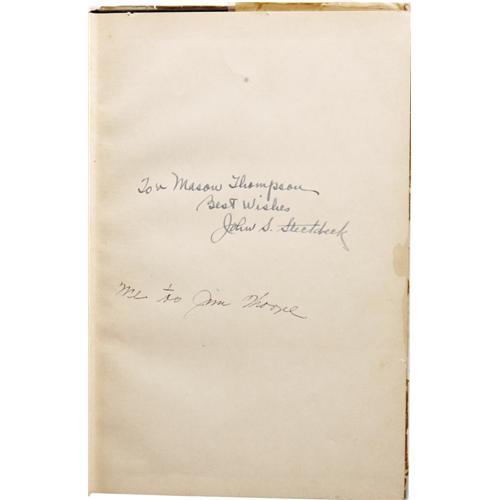 For Mason Thompson
Best Wishes
John S. Stechbeck
Me to Jim Moore